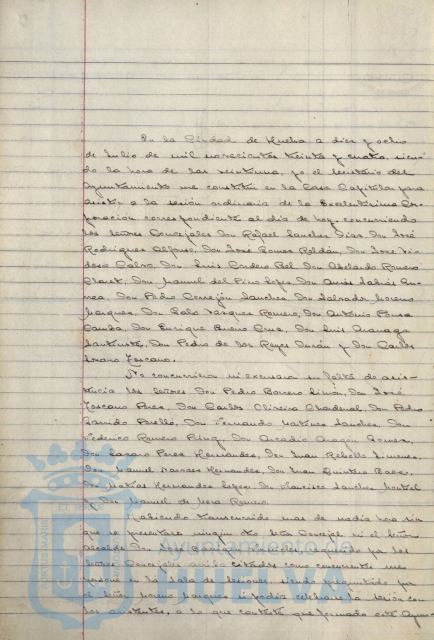 En la Ciudad de Huelva a diez y ocho
de Julio de mil novecientos treinta y cuatro, sien-
do la hora de las veintiuna, yo el Secretario del
Ayuntamiento me constituí en la Casa Capitular para
asistir a la sesión ordinaria de la Excelentísima Cor-
poración correspondiente al día de hoy, concurriendo
los Señores Concejales Don Rafael Sanchez Diaz, Don José
Rodriguez Alfonso, Don José Ponce Roldán, Don José
Calvo, Don Luis Cordero Bel, Don Abelardo Romero
Claret, Don Manuel del Pino Lopez, Don Amós Sabrás Gu-
rrea, Don Pedro Cerrejón Sanchez, Don Salvador Moreno
Marquez, Don Pablo Vazquez Romero, Don Antonio Pousa
Camba, Don Enrique Bueno Cruz, Don Luis
Santiesteban, Don Pedro de los Reyes Durán y Don Carlos
Toscano.
No concurrieron ni excusaron su falta de asis-
tencia los Señores Don Pedro Borrero Limón, Don José
Toscano Perez, Don Carlos Oliveira Chardenal, Don Pedro
Garrido Perelló, Don Fernando Martinez Sanchez, Don
Federico Romero Perez, Don Arcadio Aragón Gomez,
Don Lazaro Perez Hernandez, Don Juan Rebollo Jimenez,
Don Manuel Hernandez, Don Juan Quintero Baez,
Don Matías Hernandez Lopez, Don Francisco Sanchez
y Don Manuel de Mora Romero.
Habiendo transcurrido mas de media hora sin
que se presentara ningun otro Señor Concejal ni el Señor
Alcalde Don José Barrigón por
los Señores Concejales arriba citados como concurrentes me
en la Sala de Sesiones, siendo preguntado por
el Señor Moreno Marquez si podía celebrarse la sesión con
los asistentes, a lo que contesté que formado este Ayun-
PORTUS MARIS
ET TERRAE
Ayuntamiento de
HUELVA